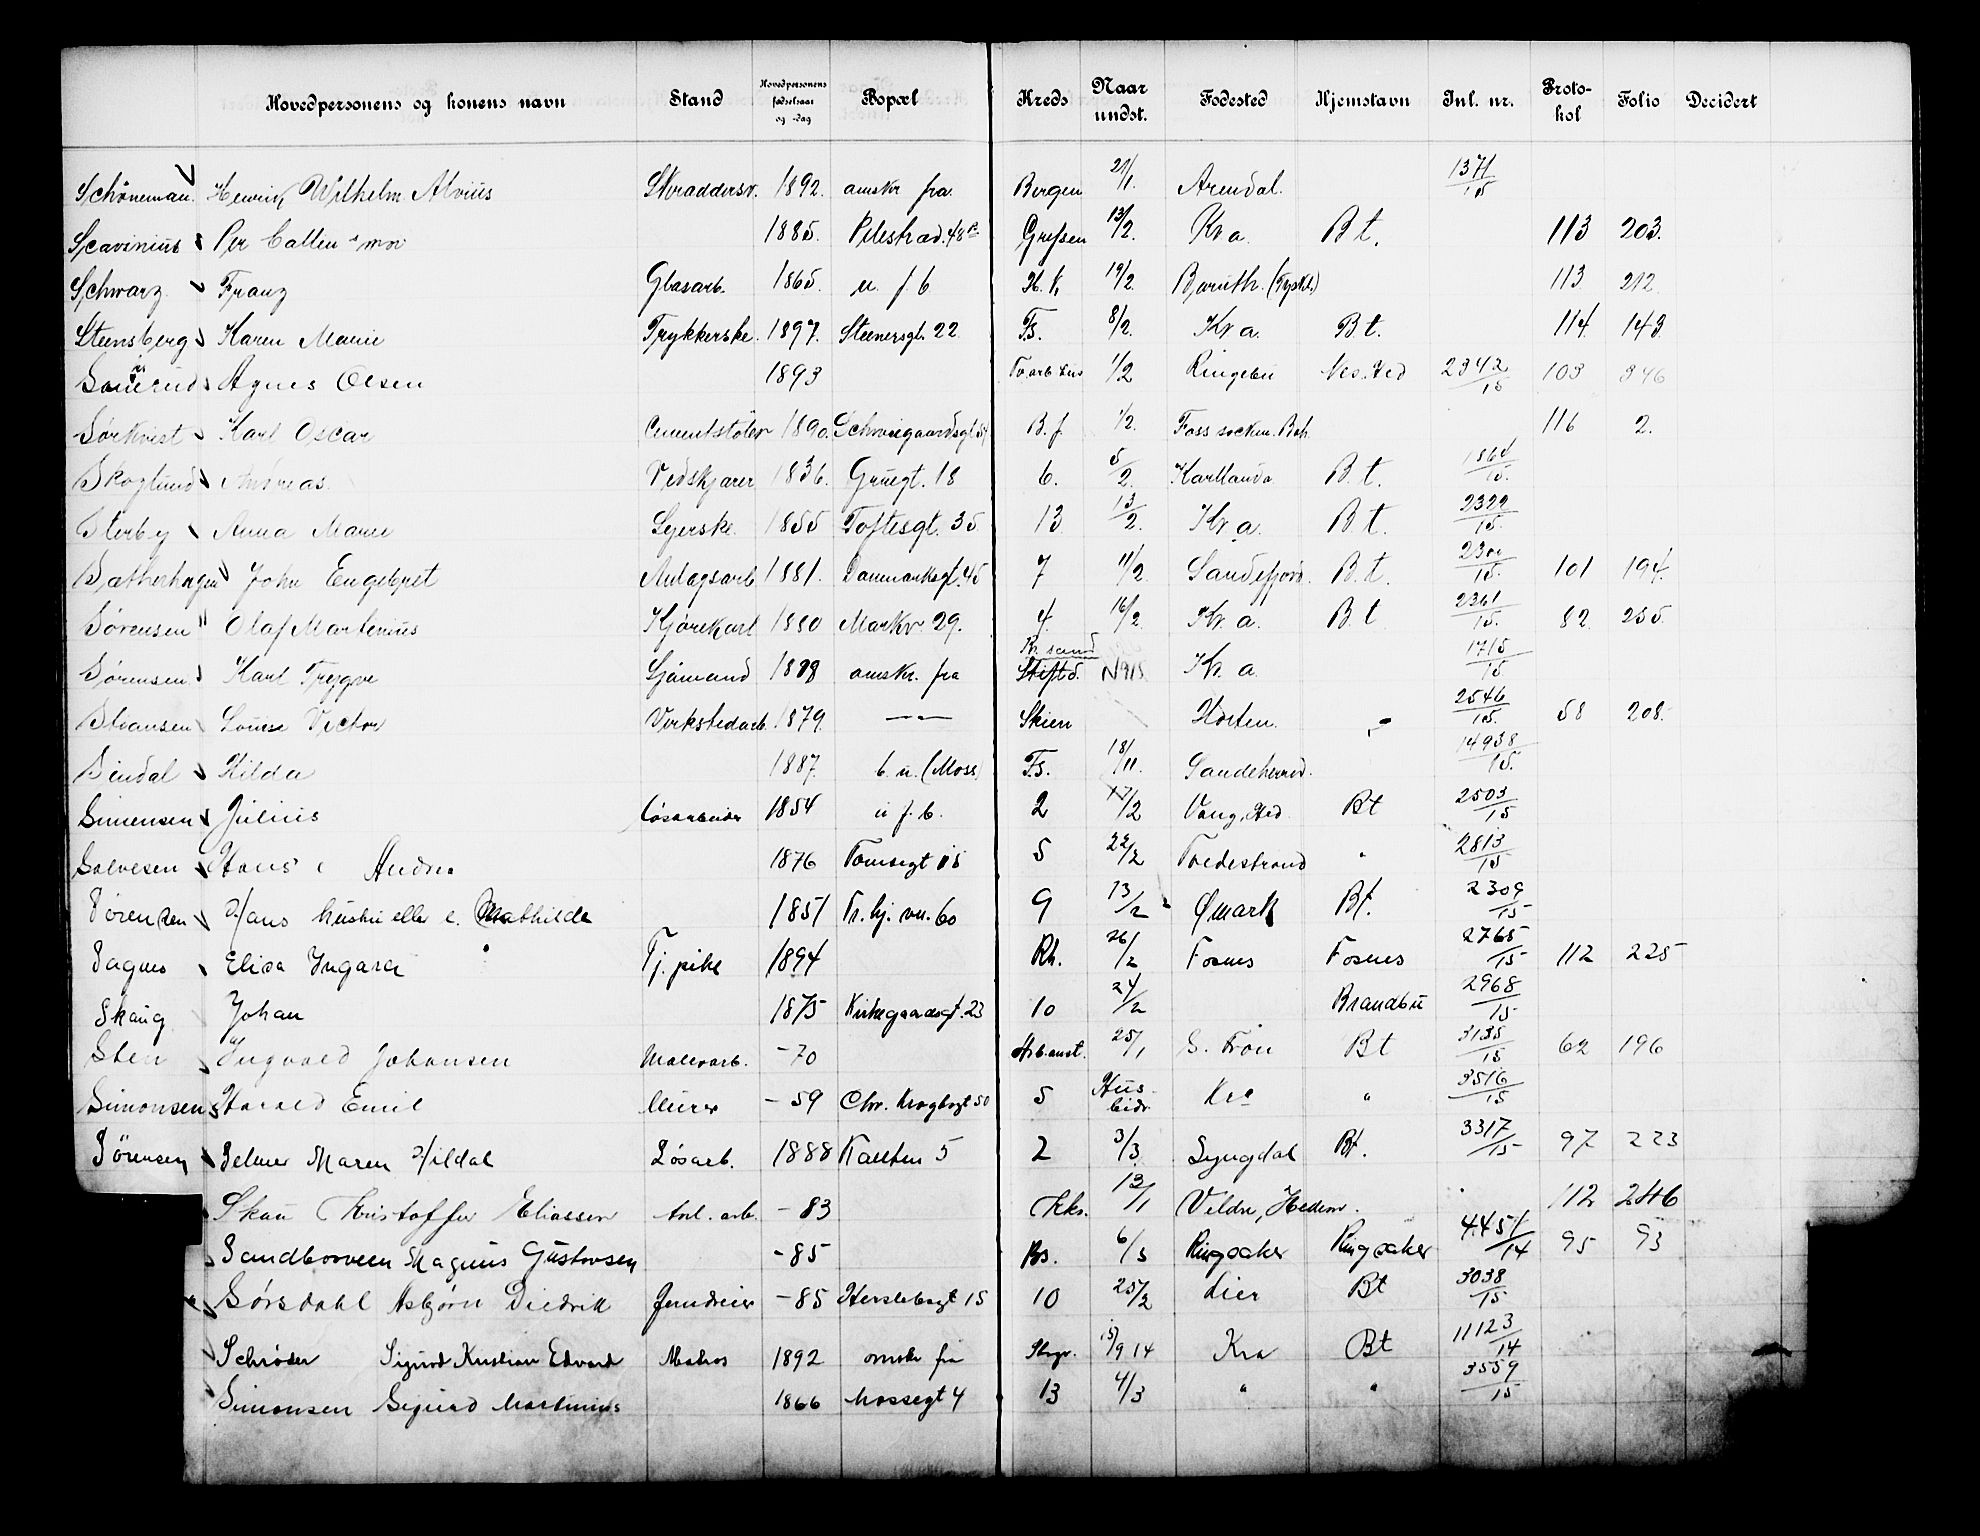 Hovedpersonens og konens navn Stand Hovedpersonens fødselsaar og -dag Bopæl Kreds Naar undst. Fødested Hjemstavn Inl. nr. Proto-kol Folio Decidert
Schöneman Henrik Wilhelm Alvius Skraddersv. 1892. anskr fra Bergen 21/1. Arendal. 1371/15
Scavinius Per Callin 1885. Pilestræd. 48 c Grefsen 13/2. Kr a. B t. 113 203.
Schwarz Franz Glasarb. 1865. u. f. b 19/2. (Tyskl.) 113 212
Steensberg Karen Marie Trykkerske. 1897. Steenersgt. 22 Fs. 8/2. Kr a. B t. 114 143
Agnes Olsen 1893 1/2 Ringebu Nes. Hed 2342/15 103 346
Sørkvist Karl Oscar Cementstøber 1890. Schweigaardsgt 54 B. f. 1/2. Foss socken. Boh. 116 2.
Skoglund Andreas. Vedskjærer 1836. Gruegt. 18 6. 5/2. B t. 1864/15.
Sterby Anna Marie Syerske. 1855 Toftesgt. 35 13 13/2. Kr. a. B t. 2322/15.
Sætherhagen John Engebret Anlægsarb 1881. Danmarksgt. 45 7 11/2. Sandefjord. B. t. 15. 101 194.
Sørensen Olaf Martenius Kjørekarl 1880 Markv. 29. 4. 16/2. Kr. a. B. t. 2361/15. 82 255.
Sørensen Karl Trygve Sjømand 1888 anskr. fra Kr. sand Stiftd. N915 Kr. a 1715/15
Louise Victor Verkstedarb. 1879. —"— Skien Horten. " 2546/15. 58 208.
Sindal Hilda 1887. b. u. (Moss) Fs. 18/11. Sandeherred. 14938/15.
Simensen Julius Løsarbeider 1854 u f. b. 2 17/2 Vang, Hed Bt 2503/15
Salvesen Hans 1876 Tomsegt 15 5 22/2 Tvedestrand " 2813/15
Sørensen Hans hustru eller e. Mathilde 1851 Tr. hj. vn. 60 9 13/2 Ømark Bt. 2309/15
Elisa Ingara Tj. pike 1894 Rh. 26/2 Fosnes Fosnes 2765/15 112 225
Skaug Johan 1875 Kirkegaardsgt. 23 10 24/2 Brandbu 2968/15
Sten Ingvald Johansen Malerarb. -70 Arb.anst. 25/1 S. Fron Bt 3135/15 62 196
Simonsen Harald Emil Murer -59 Chr. Kroghsgt 50 5 Hus-leidr. Kra " 3516/15
Sørensen Selmer Maren Hildal Løsarb. 1888 Kalten 5 2 3/3. Lyngdal Bt. 3317/15 97 223
Skau Kristoffer Eliassen Anl. arb. -83 Kks. 13/1 Veldre, Hedem. 112 246
Sandborveen Magnus Gustovsen -85 Bs. 6/3 Ringsaker Ringsaker 4451/14 95 93
Sørsdahl Asbjørn Diedrik Jerndreier -85 Herslebsgt 15 10 25/2 Lier Bt 3038/15
Schrøder Sigurd Kristian Edvard Matros 1892 omskr fra 15/9 14 Kra Bt 11123/14
Simonsen Sigurd Martinius 1866 Mossegt 4 13 4/3 " " 3559/15